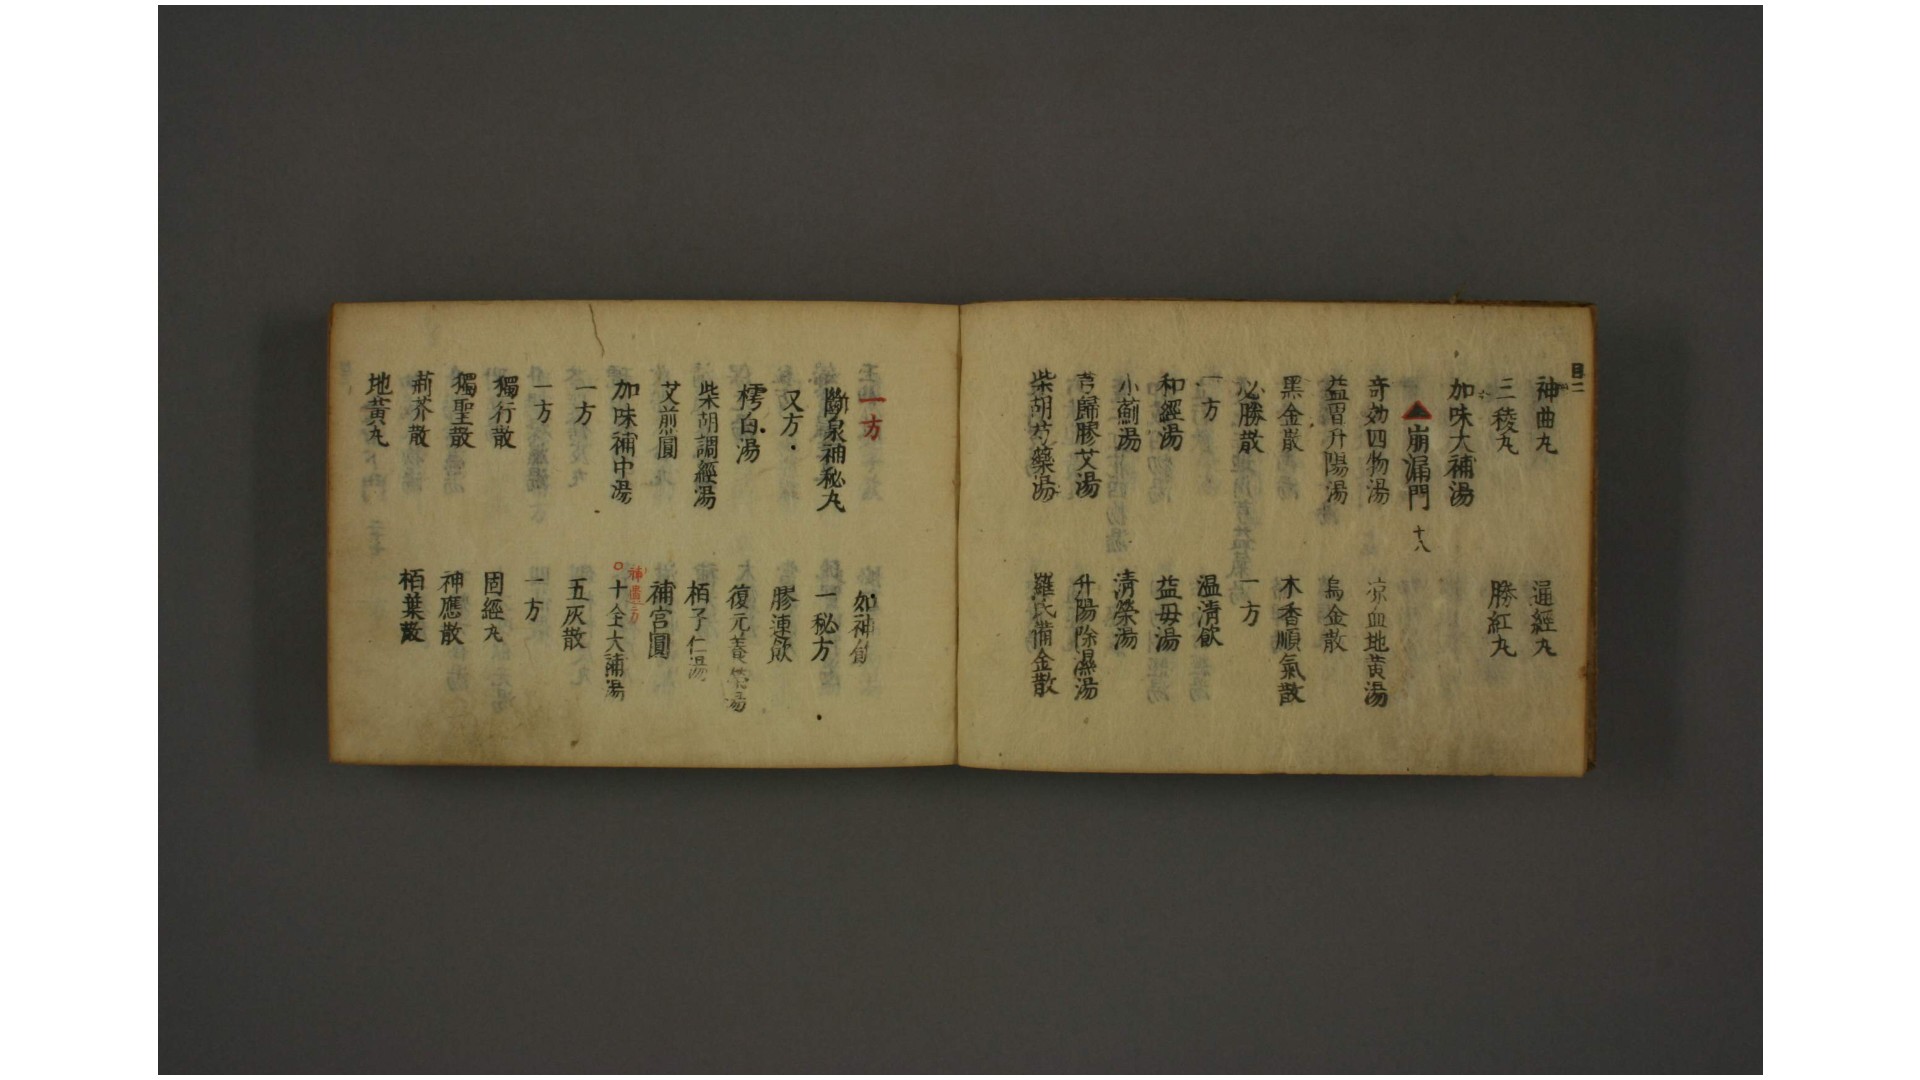 目二
神曲丸 通經丸
三稜丸 勝紅丸
加味大補湯
崩漏門 十八
奇効四物湯 凉血地黄湯
益胃升陽湯 烏金散
黑金散 木香順氣散
必勝散 一方
一方 温清飲
和經湯 益母湯
小薊湯 清榮湯
芎歸膠艾湯 升陽除濕湯
柴胡芍藥湯 羅氏備金散
一方 如神飲
斷泉神秘丸 一秘方
又方 膠連飲
樗白湯 復元養榮湯
柴胡調經湯 栢子仁湯
艾煎圓 補宮圓
補遺方
加味補中湯 十全大補湯
一方 五灰散
一方 一方
獨行散 固經丸
獨聖散 神應散
荊芥散 栢葉散
地黃丸